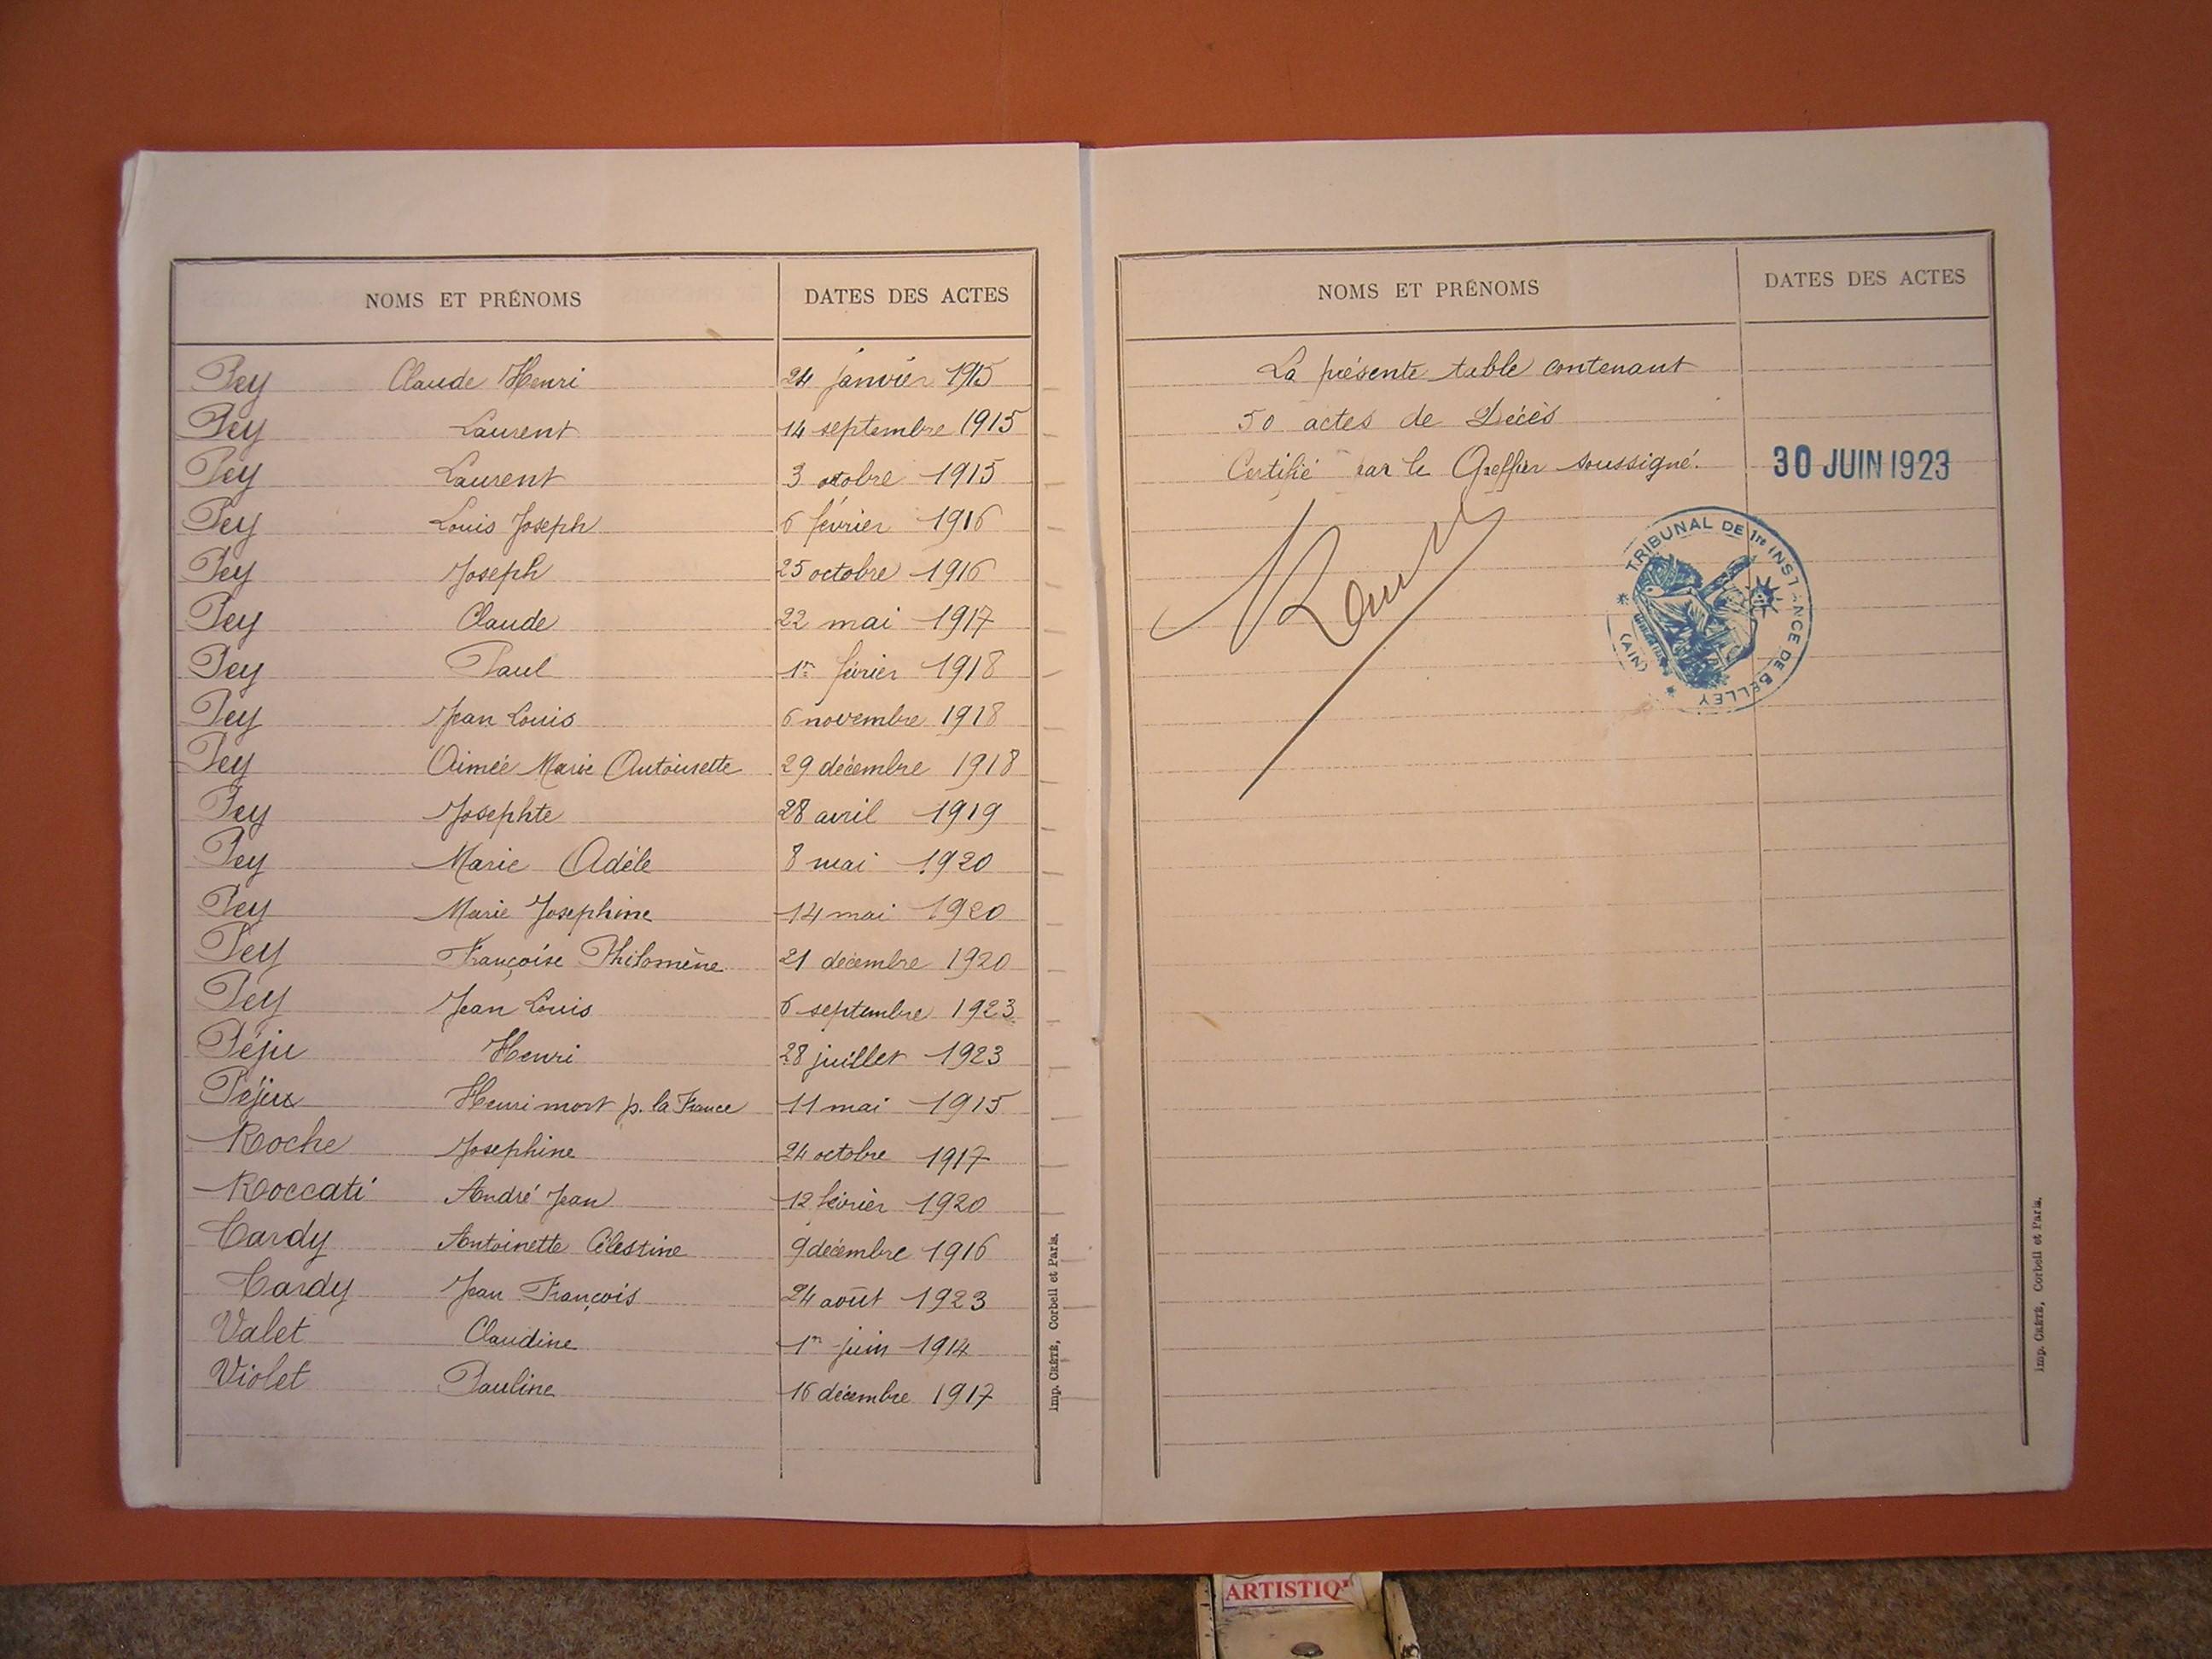 NOMS ET PRÉNOMS DATES DES ACTES
Pey Claude Henri 24 janvier 1915
Pey Laurent 14 septembre 1915
Pey Laurent 3 octobre 1915
Pey Louis Joseph 6 février 1916
Pey Joseph 25 octobre 1916
Pey Claude 22 mai 1917
Pey Paul 1er février 1918
Pey Jean Louis 6 novembre 1918
Pey Aimée Marie Antoinette 29 décembre 1918
Pey Josephte 28 avril 1919
Pey Marie Adéle 8 mai 1920
Pey Marie Josephine 14 mai 1920
Pey Françoise Philomène 21 decembre 1920
Pey Jean Louis 6 septembre 1923
Péju Henri 28 juillet 1923
Péjux Henri mort p. la France 11 mai 1915
Roche Josephine 24 octobre 1917
Roccati André Jean 12 février 1920
Tardy Antoinette Célestine 9 décembre 1916
Tardy Jean François 24 août 1923
Valet Claudine 1er juin 1914
Violet Pauline 16 décembre 1917
Imp. CRÉTÉ, Corbeil et Paris.
NOMS ET PRÉNOMS DATES DES ACTES
La présente table contenant
50 actes de Décès
Certifié par le Greffier soussigné. 30 JUIN 1923
TRIBUNAL DE 1re INSTANCE DE BELLEY
(AIN)
Imp. CRÉTÉ, Corbeil et Paris.
ARTISTIQ